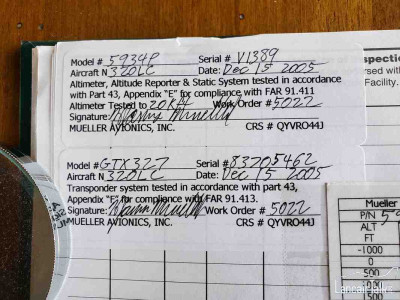 Model # 5934P Serial # V1389
Aircraft N 320LC Date: Dec 15 2005
Altimeter, Altitude Reporter & Static System tested in accordance
with Part 43, Appendix "E" for compliance with FAR 91.411
Altimeter Tested to 20 Kft Work Order # 5022
Signature:
MUELLER AVIONICS, INC. CRS # QYVRO44J
Model # GTX327 Serial # 83205462
Aircraft N 320LC Date: Dec 15 2005
Transponder system tested in accordance with part 43,
Appendix "F" for compliance with FAR 91.413.
Signature: Work Order # 5022
MUELLER AVIONICS, INC. CRS # QYVRO44J
spection
rsed with
Facility.
Mueller
P/N 59
ALT
FT
-1000
0
500
1000
1500
LancairTalks